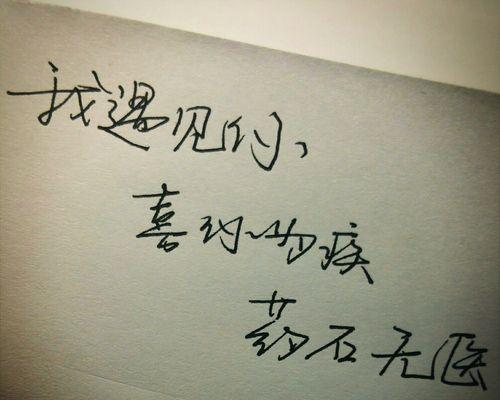 我遇见你、
喜你成疾
药石无医